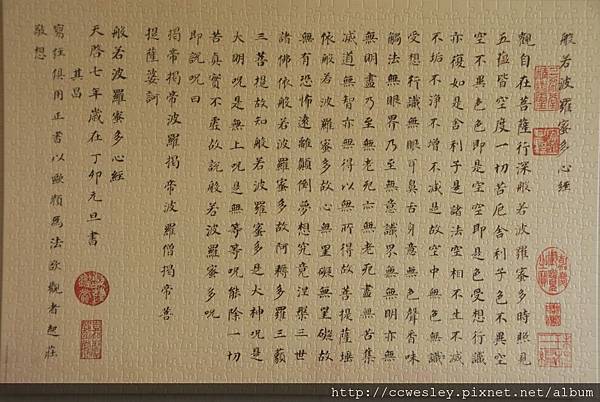 般若波羅蜜多心經
觀自在菩薩行深般若波羅蜜多時照見
五蘊皆空度一切苦厄舍利子色不異空
空不異色色即是空空即是色受想行識
亦復如是舍利子是諸法空相不生不滅
不垢不淨不增不減是故空中無色無識
受想行識無眼耳鼻舌身意無色聲香味
觸法無眼界乃至無意識界無無明亦無
無明盡乃至無老死亦無老死盡無苦集
滅道無智亦無得以無所得故菩提薩埵
依般若波羅蜜多故心無罣礙無罣礙故
無有恐怖遠離顛倒夢想究竟涅槃三世
諸佛依般若波羅蜜多故阿耨多羅三藐
三菩提故知般若波羅蜜多是大神呪是
大明呪是無上呪是無等等呪能除一切
苦真實不虛故說般若波羅蜜多呪
即說呪曰
揭帝揭帝波羅揭帝波羅僧揭帝菩
提薩婆訶
般若波羅蜜多心經
天啓七年歲在丁卯元旦書
其昌
寫經俱用正書以歐顏為法欲觀者起莊
敬想
http://ccwesley.pixnet.net/album